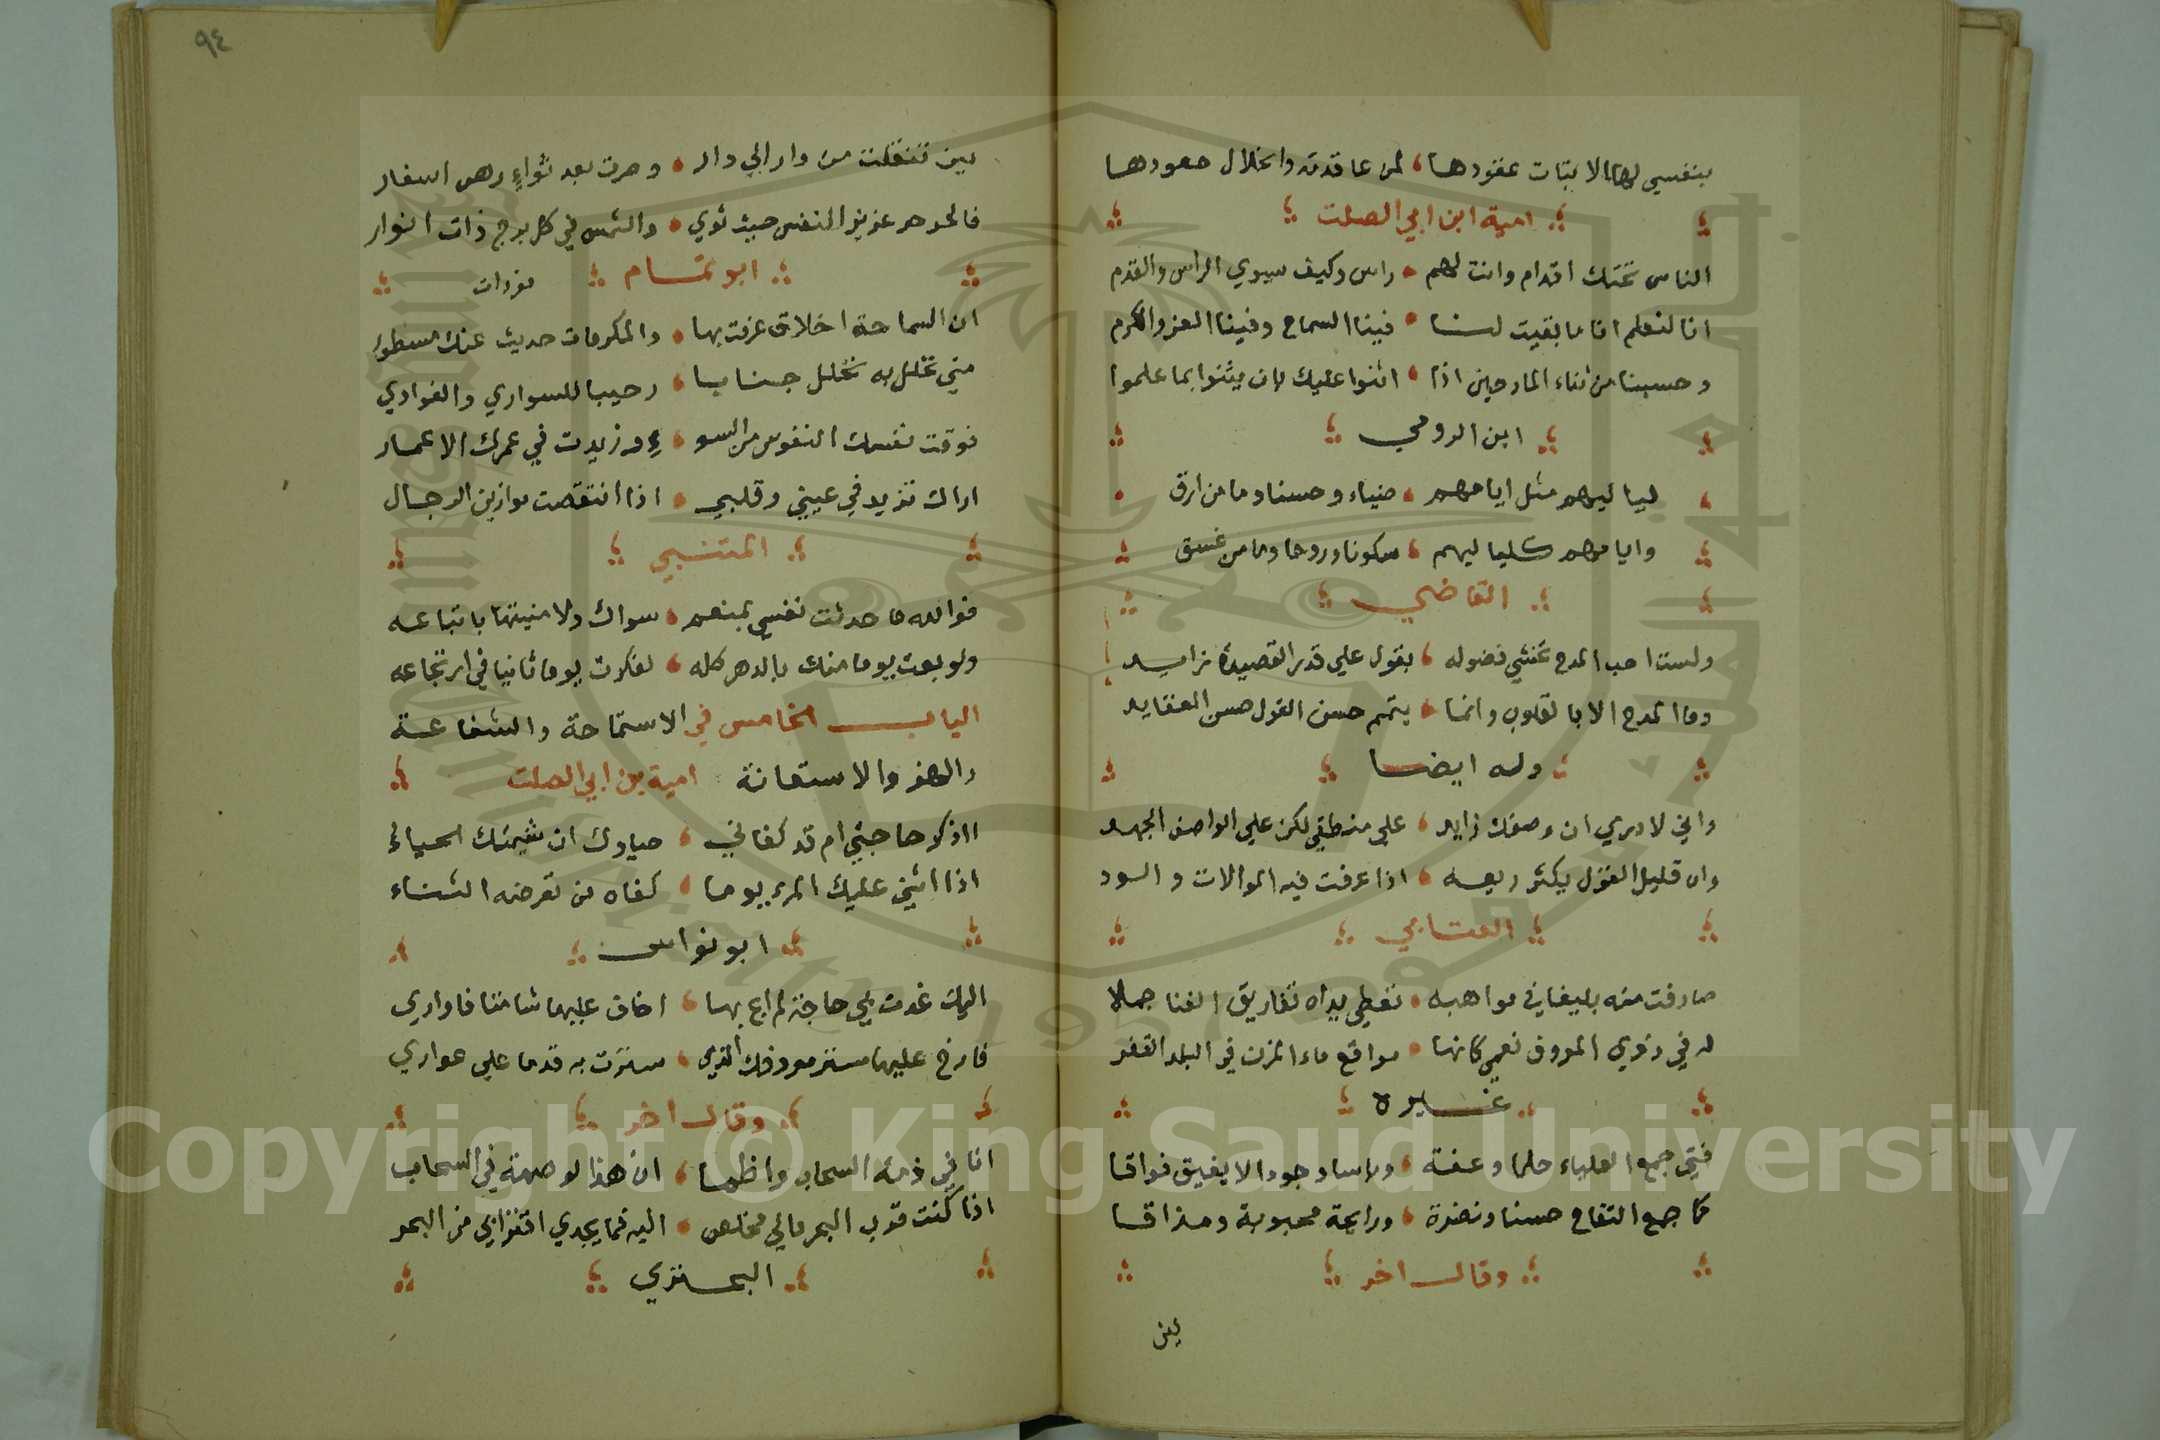 بنفسي لها الا بتات عقودها لمن عاقدته وانحلال حعودها
امية ابن ابي الصلت
الناس تحتك اقدام وانت لهم راس وكيف سيوي الراس والقدم
انا لنعلم انا ما بقيت لنا فينا السماح وفينا العز والكرم
وحسبنا من ثناء المادحين اذا اثنوا عليك بان يثنوا بما علموا
ابن الرومي
لياليهم مثل ايامهم ضياء وحسنا وما من ارق
وايامهم كلياليهم سكونا وروحا وما من غسق
القاضي
ولست احب المدح تحشي فضوله بقول علي قدر القصيدة زايد
وما المدح الا بالقلوب وانما يتمم حسن القول حسن العقايد
وله ايضا
واني لادري ان وصفك زايد علي منطقي لكن علي الواصف الجهد
وان قليل القول يكثر ريعه اذا عرفت فيه الموالات والود
العتابي
صادفت منه بليغا في مواهبه تعطي يداه تفاريق الغنا جملا
له في ذوي المعروف نعمي كانها مواقع ماء المزن في البلد القفر
غيره
فتي جمع العلياء حلما وعفة وباسا وجودا لا يفيق فواقا
كما جمع التفاح حسنا ونضرة ورايحة محبوبة ومذاقا
وقال اخر
لين
٩٤
لين تنقلت من دار الي دار وصرت بعد ثواء رهن اسفار
فالحر حر عزيز النفس حيث ثوي والشمس في كل برج ذات انوار
ابو تمام مفردات
ان السماحة اخلاق عرفت بها والمكرمات حديث عنك مسطور
متي تحلل به تحلل جنابا رحيبا للسواري والغوادي
فوقت نفسك النفوس من السو ء وزيدت في عمرك الاعمار
اراك تزيد في عيني وقلبي اذا انتقصت موازين الرجال
المتنبي
فوالله ما حدثت نفسي بمنعم سواك ولا منيتها باتباعه
ولو بعت يوما منك بالدهر كله لفكرت يوما ثانيا في ارتجاعه
الباب الخامس في الاستماحة والشفاعة
والهز والاستعانة امية بن ابي الصلت
ااذكر حاجتي ام قد كفاني حياوك ان شيمتك الحياء
اذا اثني عليك المرء يوما كفاه من تعرضه الثناء
ابو نواس
اليك غدت بي حاجة لم ابح بها اخاف عليها شامتا فاداري
فارخ عليها ستر معروفك الذي سترت به قدما علي عواري
وقال اخر
انا في ذمة السحاب واظما ان هذا لوصمة في السحاب
اذا كنت قرب البحر مالي مخلص اليه فما يجدي اقترابي من البحر
البحتري
Copyright © King Saud University